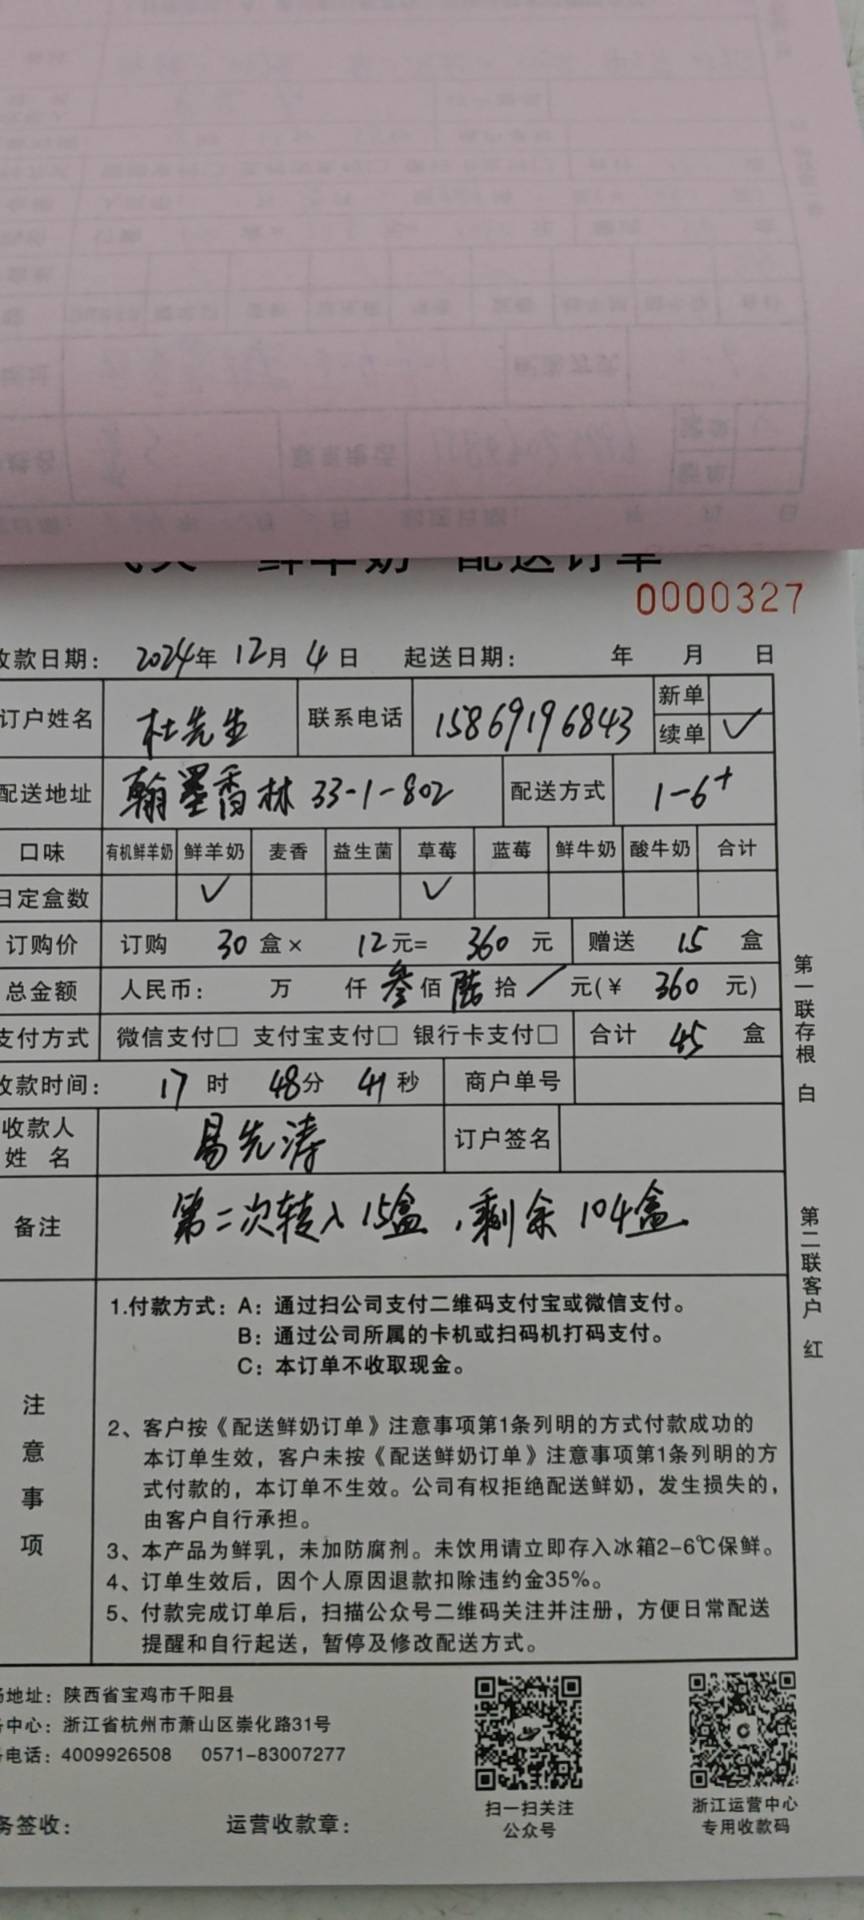 鲜羊奶 配送订单
0000327
收款日期： 2024年 12月 4日 起送日期： 年 月 日
订户姓名 杜先生 联系电话 15869196843 新单
续单 ✓
配送地址 翰墨香林 33-1-802 配送方式 1-6+
口味 有机鲜羊奶 鲜羊奶 麦香 益生菌 草莓 蓝莓 鲜牛奶 酸牛奶 合计
日定盒数 ✓ ✓
订购价 订购 30 盒× 12元= 360 元 赠送 15 盒
总金额 人民币： 万 仟 叁佰 陆拾 / 元(￥ 360 元)
支付方式 微信支付□ 支付宝支付□ 银行卡支付□ 合计 45 盒
收款时间： 17 时 48分 41秒 商户单号
收款人
姓 名 易先涛 订户签名
备注 第二次转入15盒，剩余104盒
注意事项
1.付款方式：A：通过扫公司支付二维码支付宝或微信支付。
B：通过公司所属的卡机或扫码机打码支付。
C：本订单不收取现金。
2、客户按《配送鲜奶订单》注意事项第1条列明的方式付款成功的
本订单生效，客户未按《配送鲜奶订单》注意事项第1条列明的方
式付款的，本订单不生效。公司有权拒绝配送鲜奶，发生损失的，
由客户自行承担。
3、本产品为鲜乳，未加防腐剂。未饮用请立即存入冰箱2-6℃保鲜。
4、订单生效后，因个人原因退款扣除违约金35%。
5、付款完成订单后，扫描公众号二维码关注并注册，方便日常配送
提醒和自行起送，暂停及修改配送方式。
第一联存根 白
第二联客户 红
场地址：陕西省宝鸡市千阳县
中心：浙江省杭州市萧山区崇化路31号
电话：4009926508 0571-83007277
扫一扫关注
公众号
浙江运营中心
专用收款码
务签收： 运营收款章：